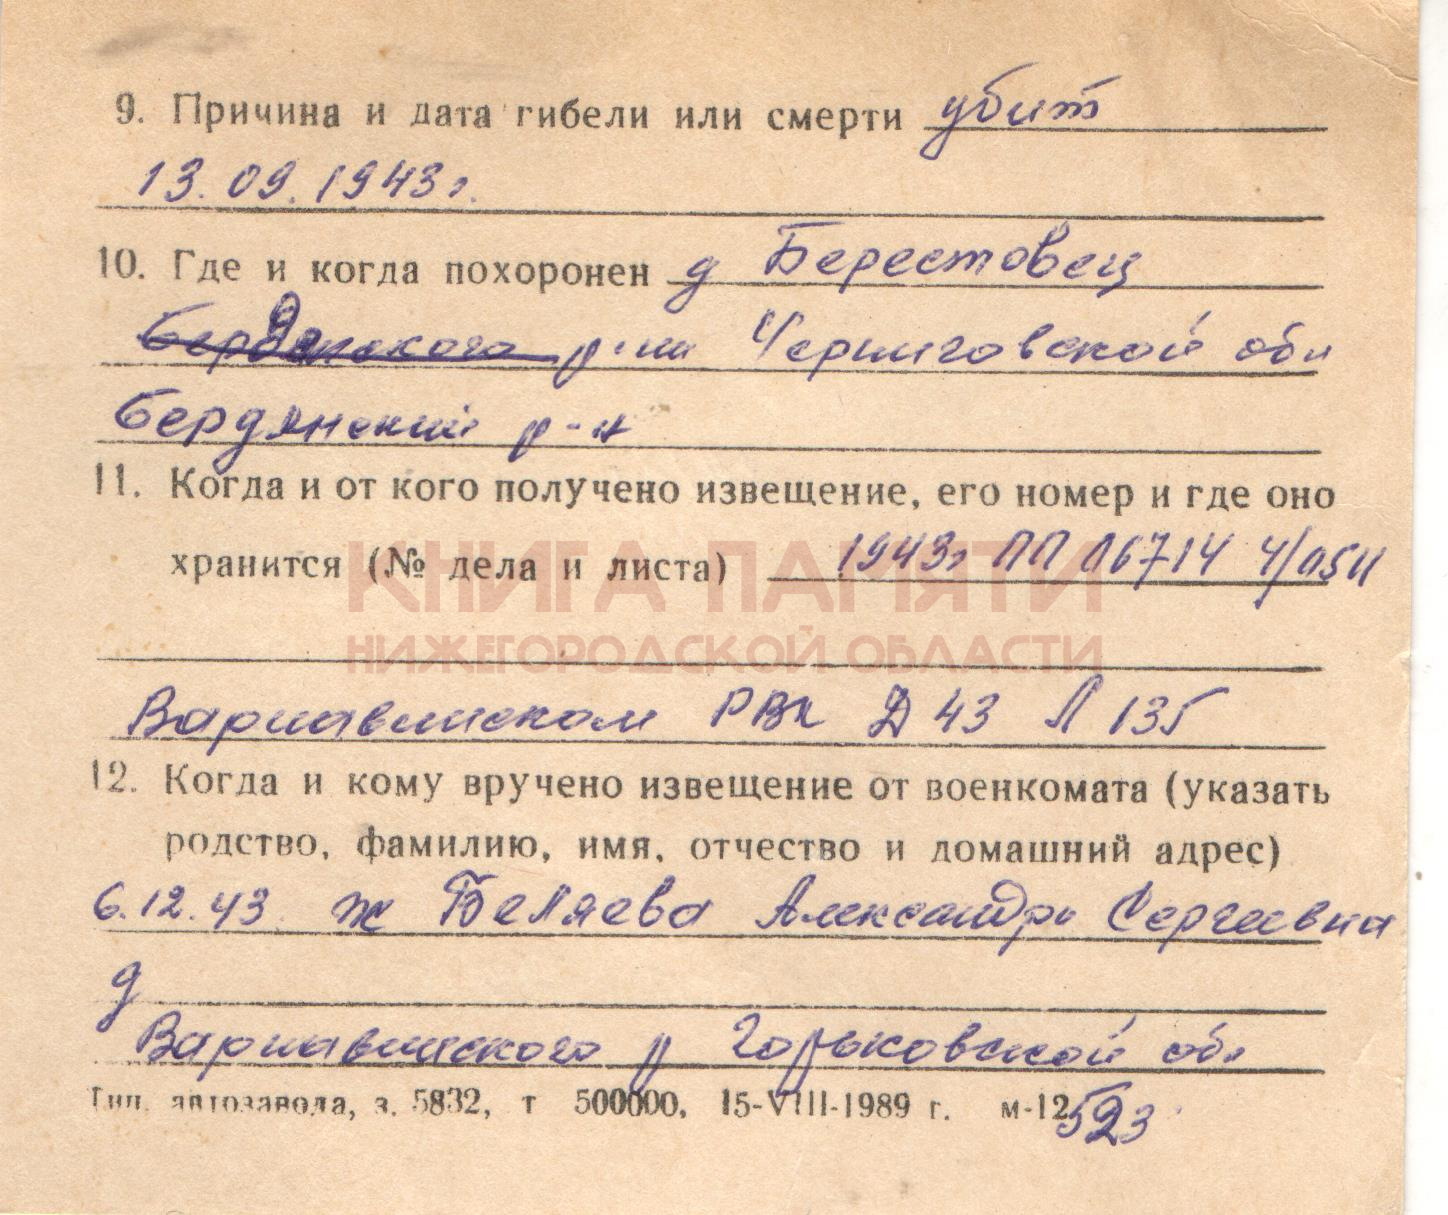 9. Причина и дата гибели или смерти убит
13.09.1943г.
10. Где и когда похоронен д Берестовец
р-на Черниговской обл
Бердянский р-н
11. Когда и от кого получено извещение, его номер и где оно
хранится (№ дела и листа) 1943г ПП 16714
КНИГА ПАМЯТИ
НИЖЕГОРОДСКОЙ ОБЛАСТИ
Варнавинском РВК Д 43 Л 135
12. Когда и кому вручено извещение от военкомата (указать
родство, фамилию, имя, отчество и домашний адрес)
6.12.43 ж Беляева Александра Сергеевна
д
Варнавинского р Горьковской обл
Тип. автозавода, з. 5832, т 500000, 15-VIII-1989 г. м-12
523